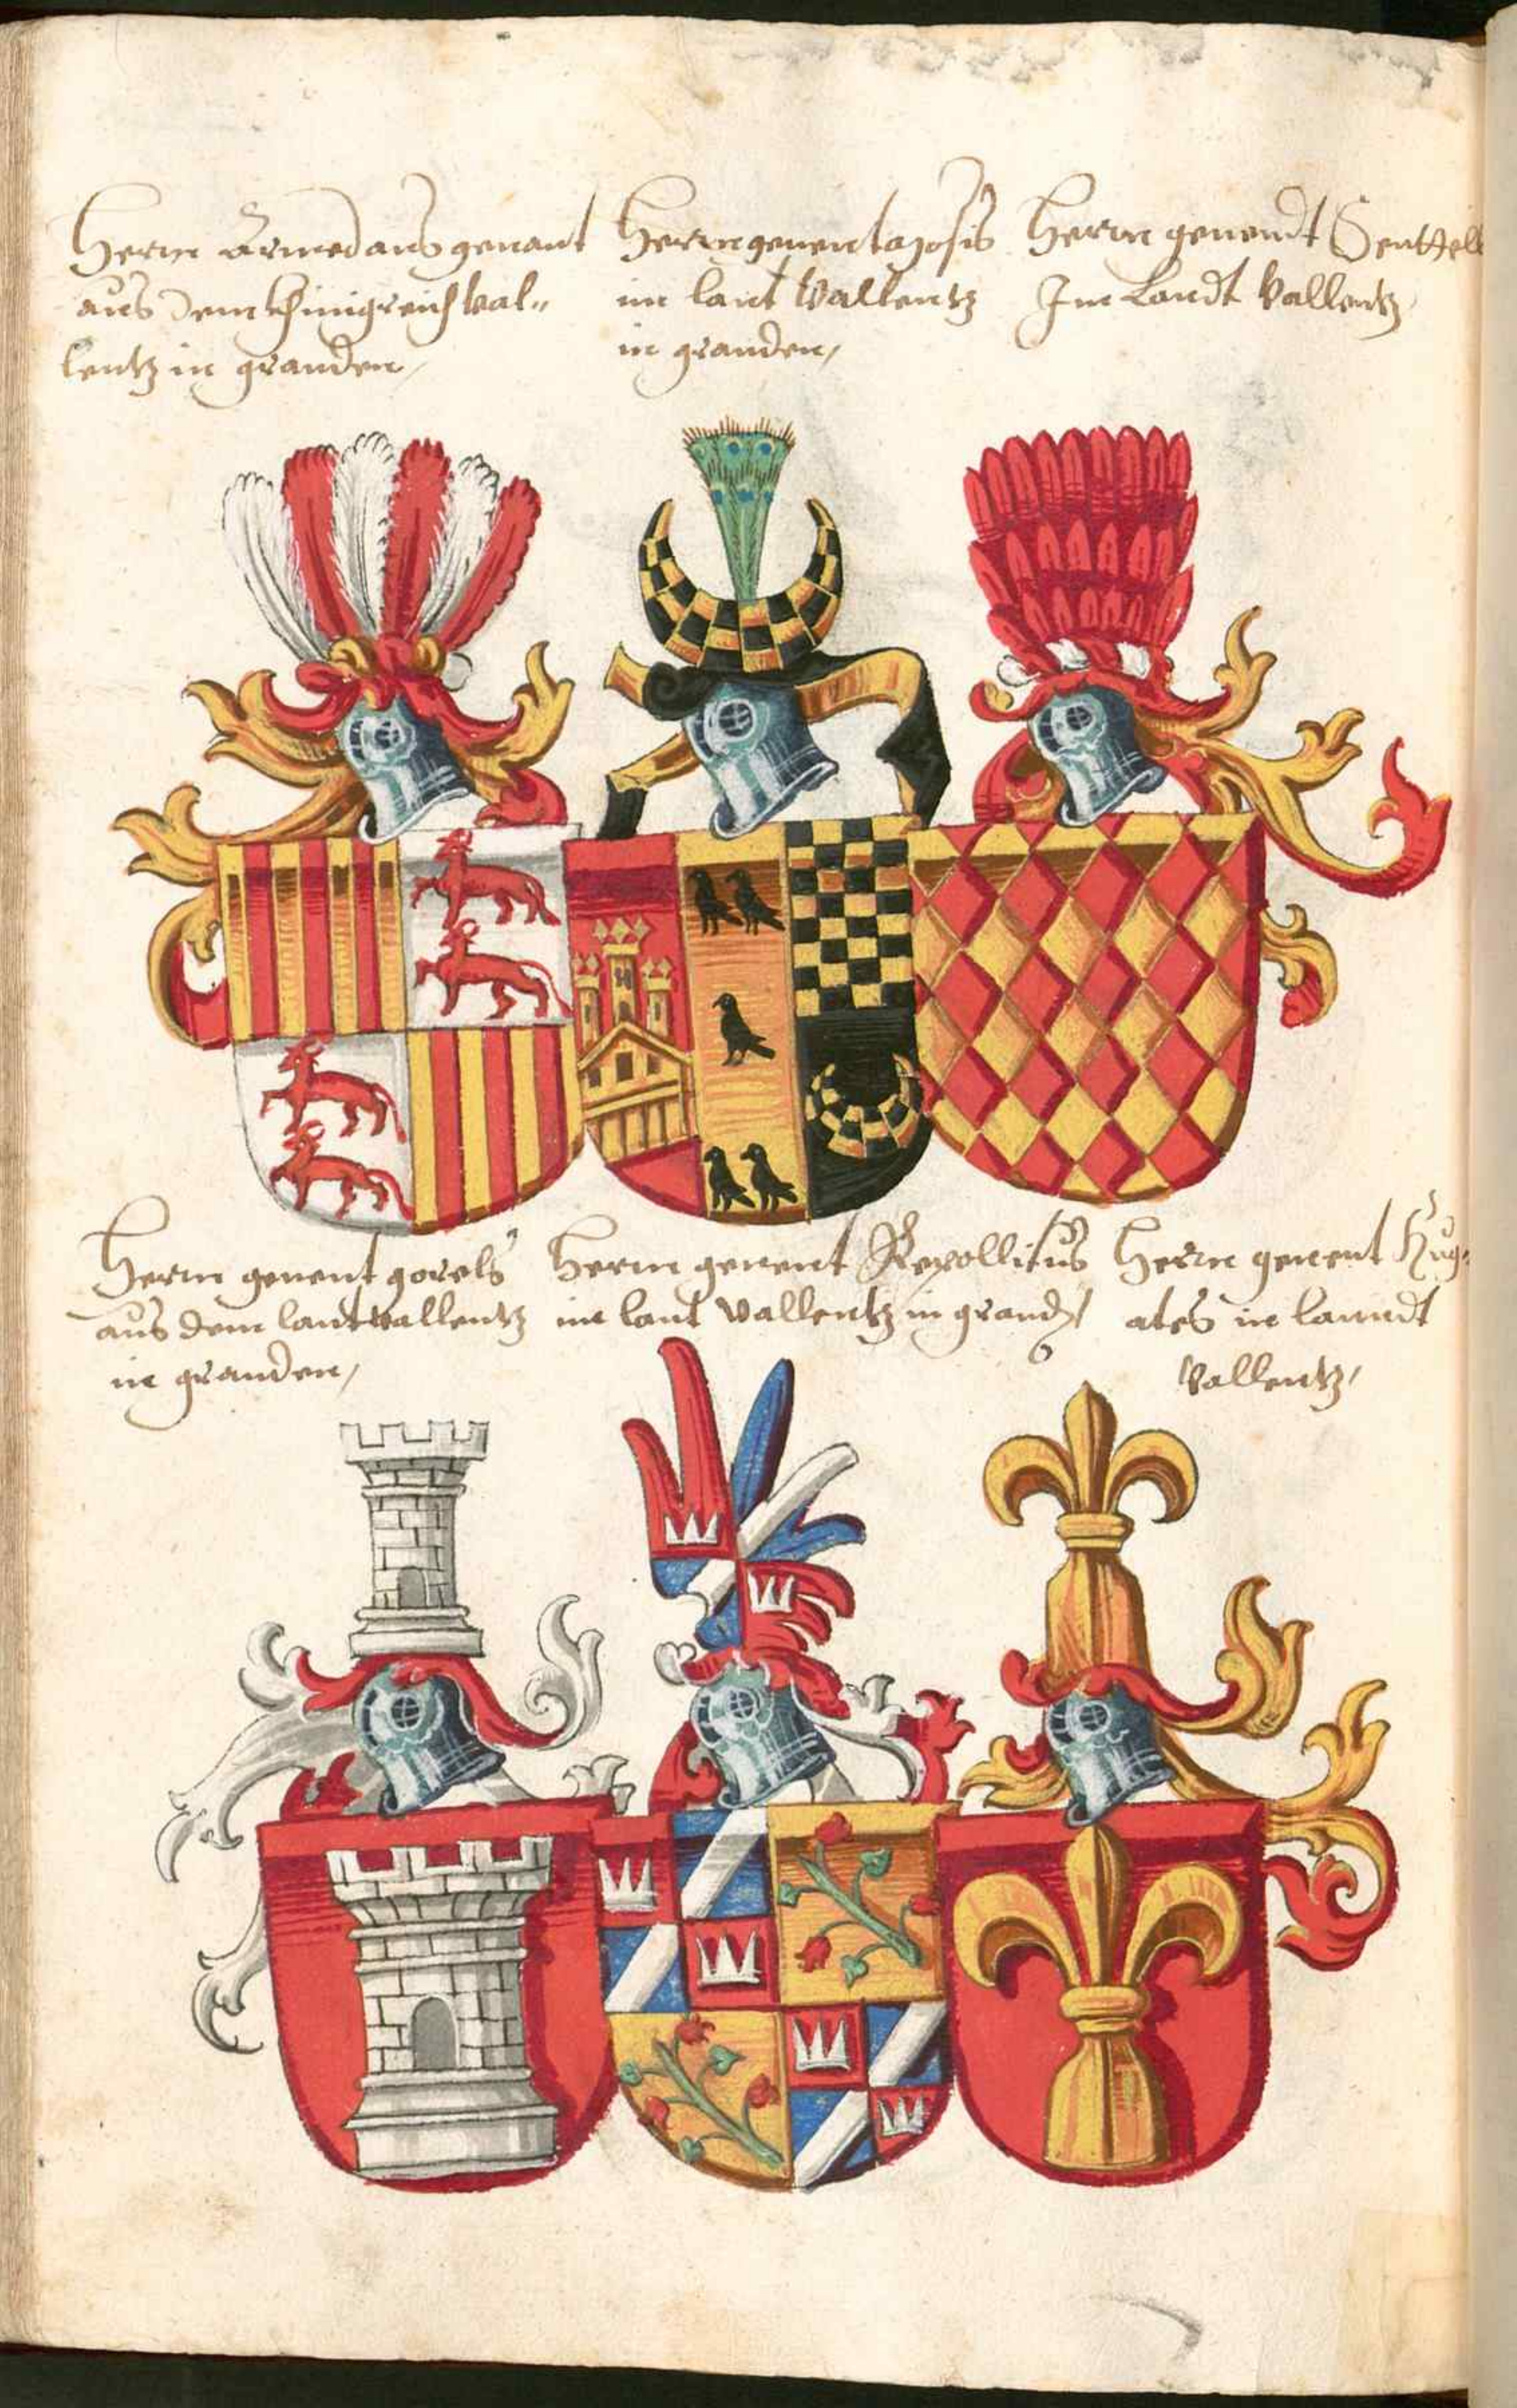 Herrn Armedans genant
aus dem khinigreich Val„
lentz in granden,
Herrn genent
im lant Vallentz
in granden,
Herrn genendt
Im Landt Vallentz,
Herrn genent gorels
aus dem lant Vallentz
in granden,
Herrn genent Repollitus
im lant Vallentz in grand
Herrn genent
ates in lanndt
Vallentz,